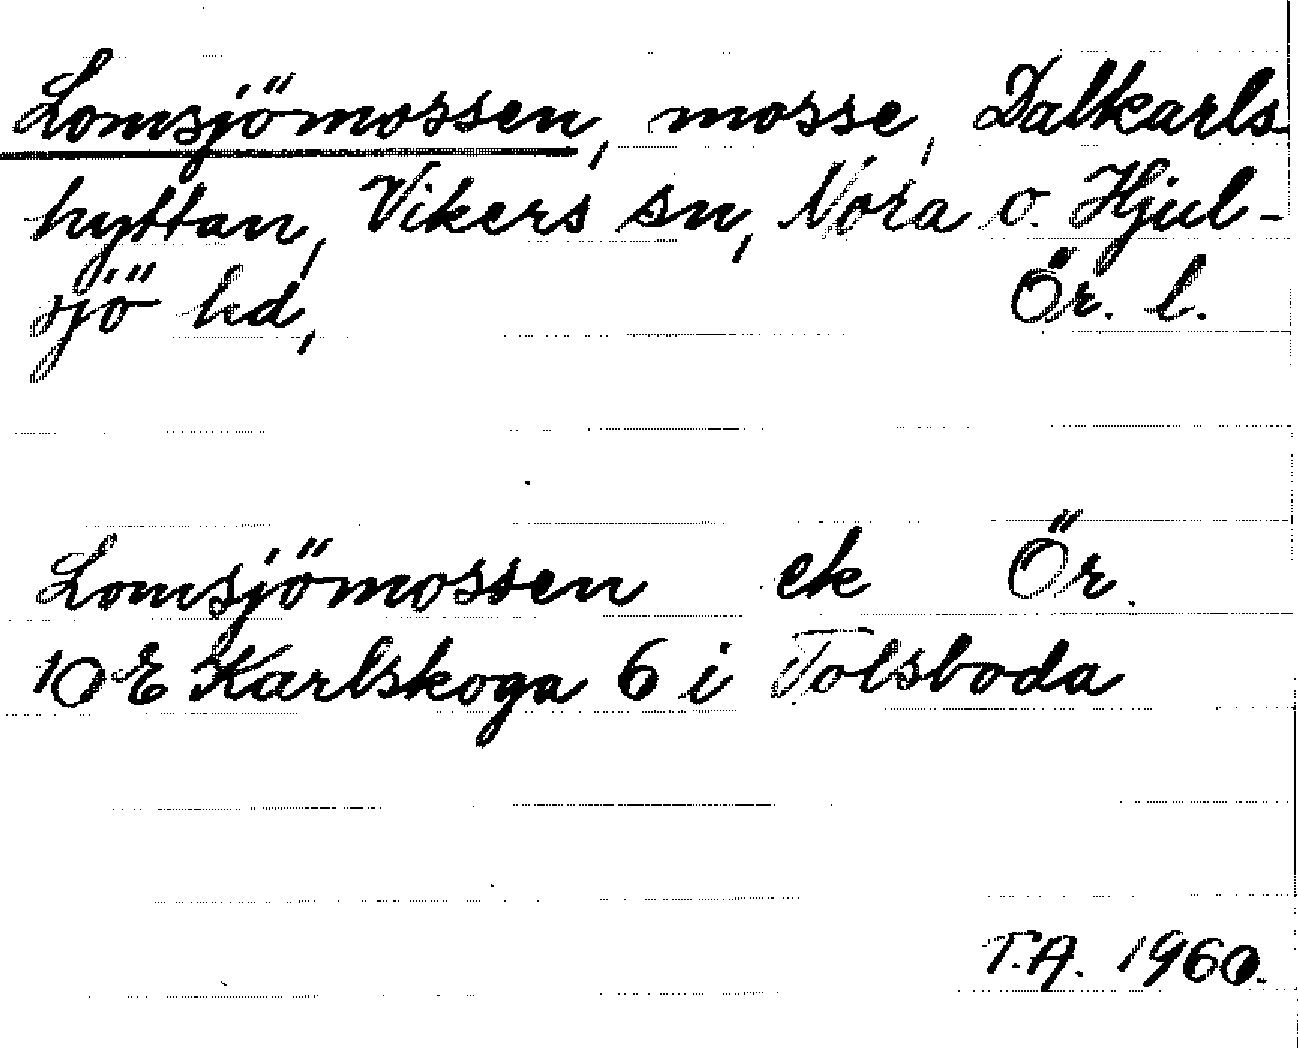 Lomsjömossen, mosse, Dalkarls-
hyttan, Vikers sn, Nora o. Hjul-
sjö hd, Ör. l.
Lomsjömossen ek Ör.
10 E Karlskoga 6 i Tolsboda
T.A. 1960.